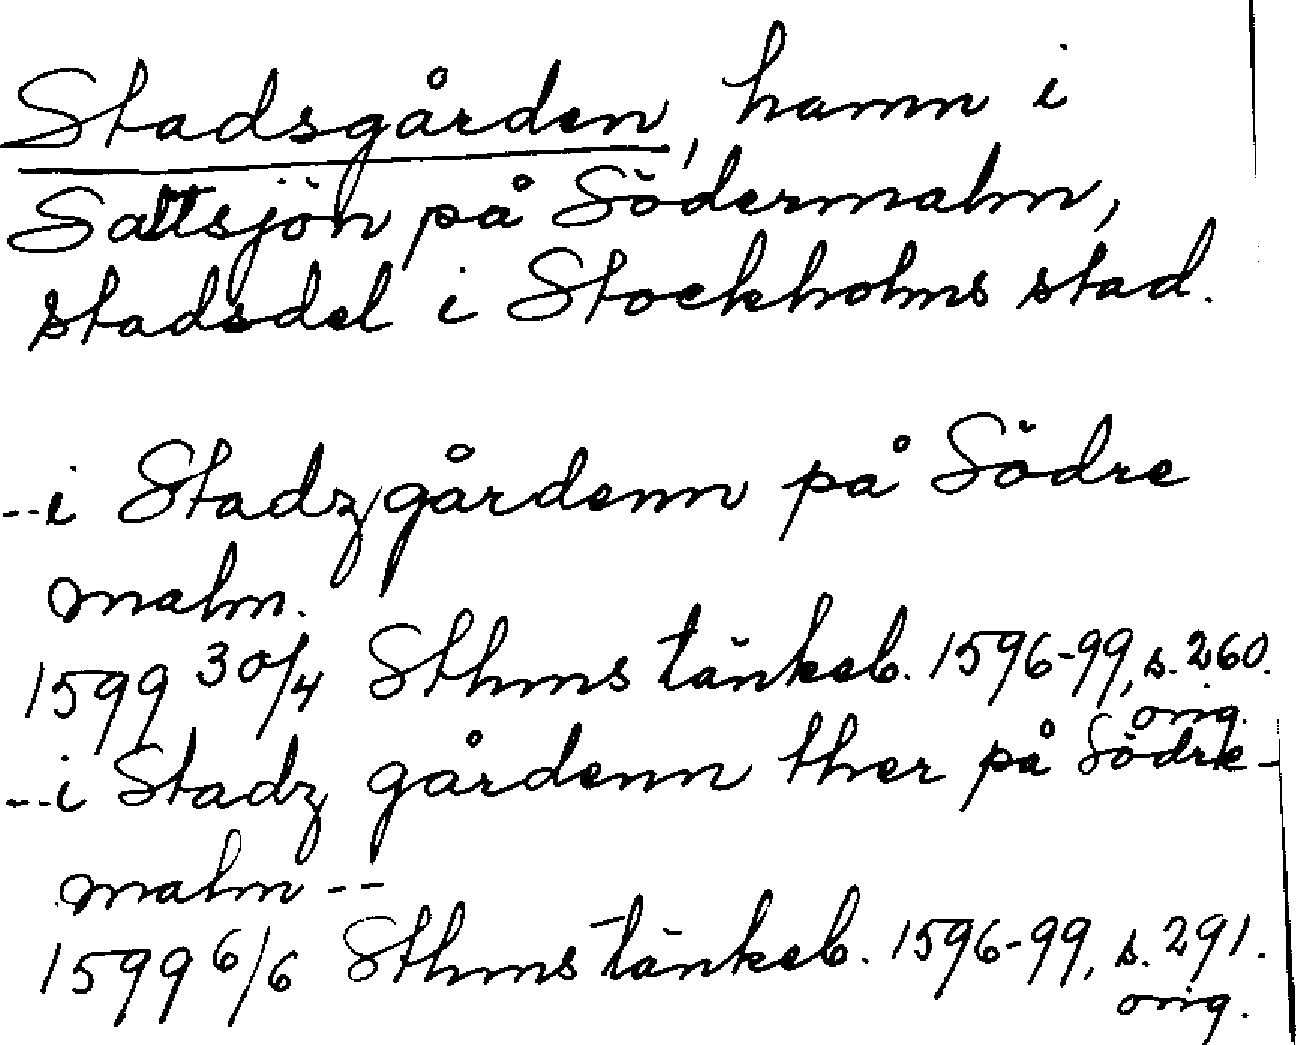 Stadsgården, hamn i
Saltsjön på Södermalm,
stadsdel i Stockholms stad.
--i Stadz gårdenn på Södre
malm.
1599 30/4 Sthms tänkeb. 1596-99, s. 260.
orig.
--i Stadz gårdenn ther på Södre-
malm --
1599 6/6 Sthms tänkeb. 1596-99, s. 291.
orig.